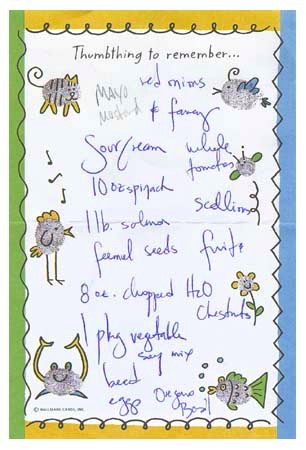 Thumbthing to remember...
red onions
Mayo
Mustard
& fancy
Sour Cream
whole
tomatoes
10 oz spinach
Scallions
1 lb. salmon
fennel seeds
fruit
8 oz. chopped H2O
Chestnuts
1 pkg vegetable
soup mix
beed
eggs
Oregano
Basil
© HALLMARK CARDS, INC.